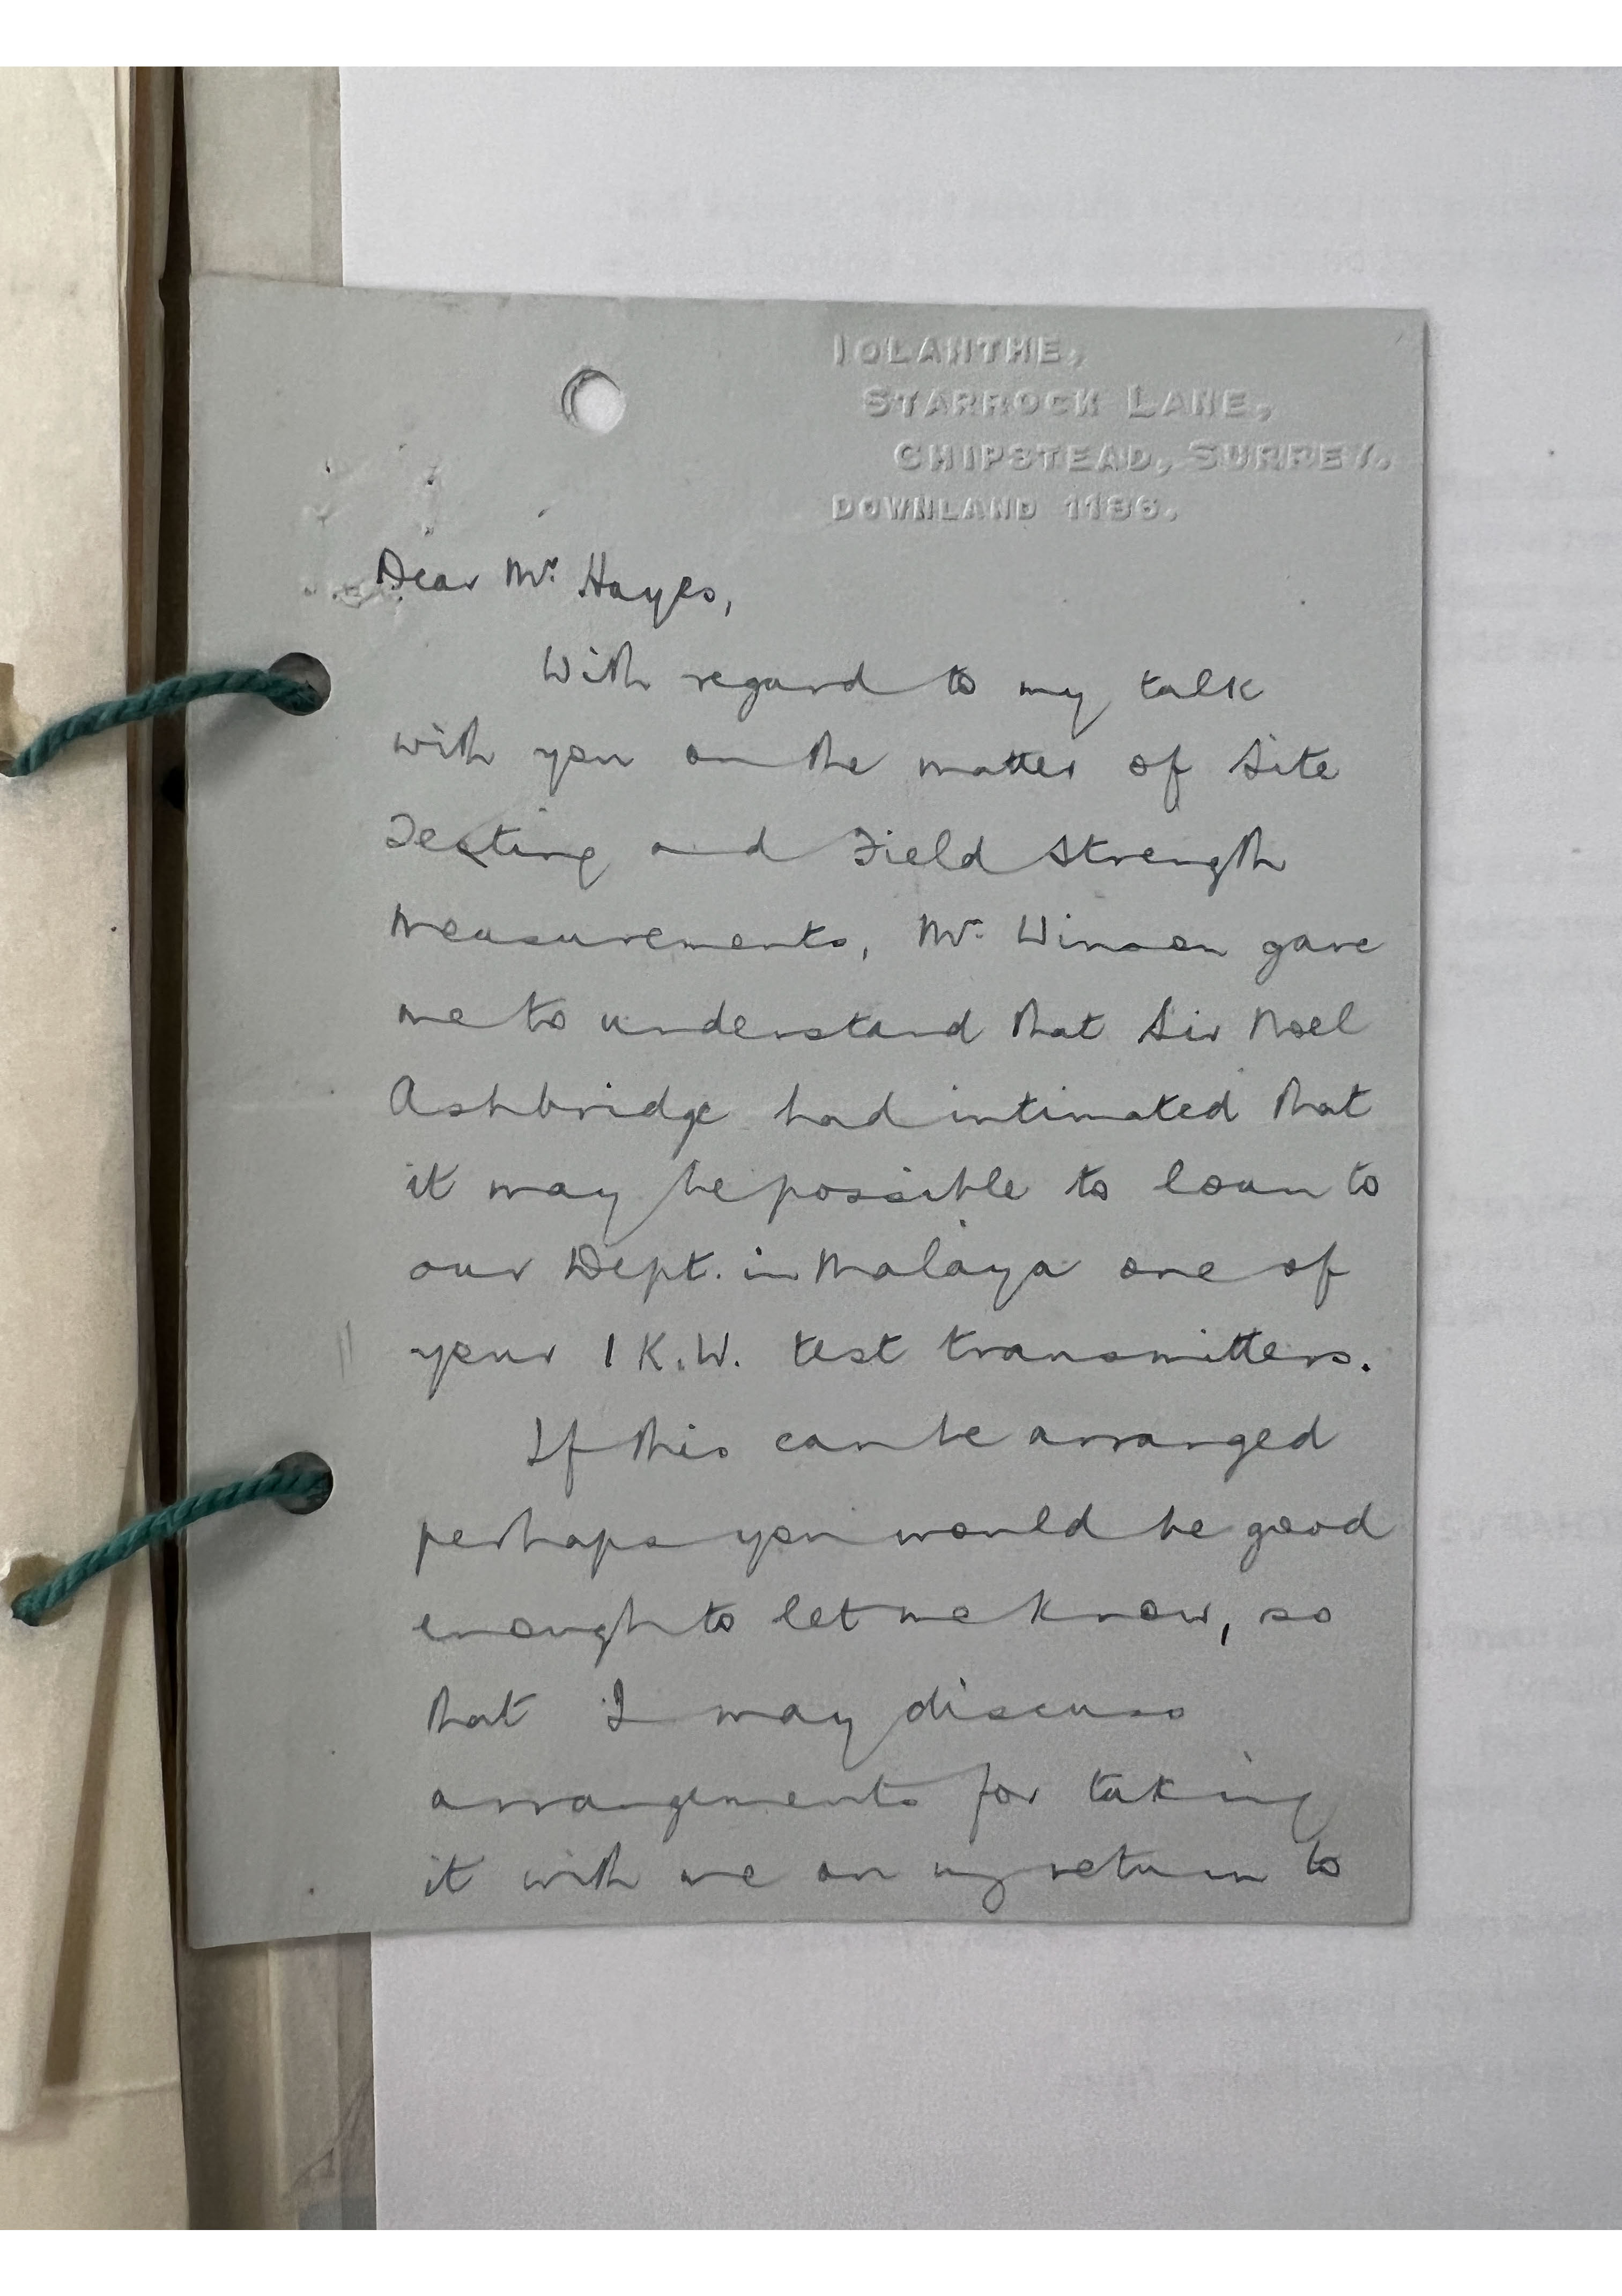 IOLANTHE,
STARROCK LANE,
CHIPSTEAD, SURREY.
DOWNLAND 1186.
Dear Mr. Hayes,
With regard to my talk
with you on the matter of Site
Testing and Field Strength
Measurements, Mr. Winson gave
me to understand that Sir Noel
Ashbridge had intimated that
it may be possible to loan to
our Dept. in Malaya one of
your 1 K.W. test transmitters.
If this can be arranged
perhaps you would be good
enough to let me know, so
that I may discuss
arrangements for taking
it with me on my return to